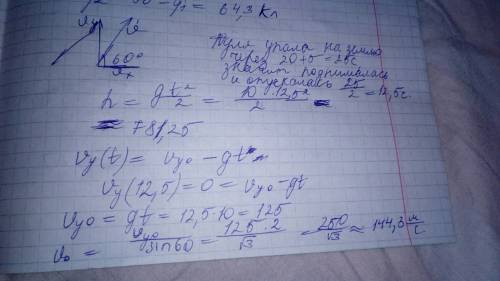 = 64,3 кл
vy
60°
vx
Пуля упала на землю
через 20+5 = 25с
значит поднималась
и опускалась 25/2 = 12,5с.
h = gt²/2 = 10·12,5²/2 =
= 781,25
vy(t) = vy0 - gt
vy(12,5) = 0 = vy0 - gt
vy0 = gt = 12,5·10 = 125
v0 = vy0/sin60 = 125·2/√3 = 250/√3 ≈ 144,3 м/с